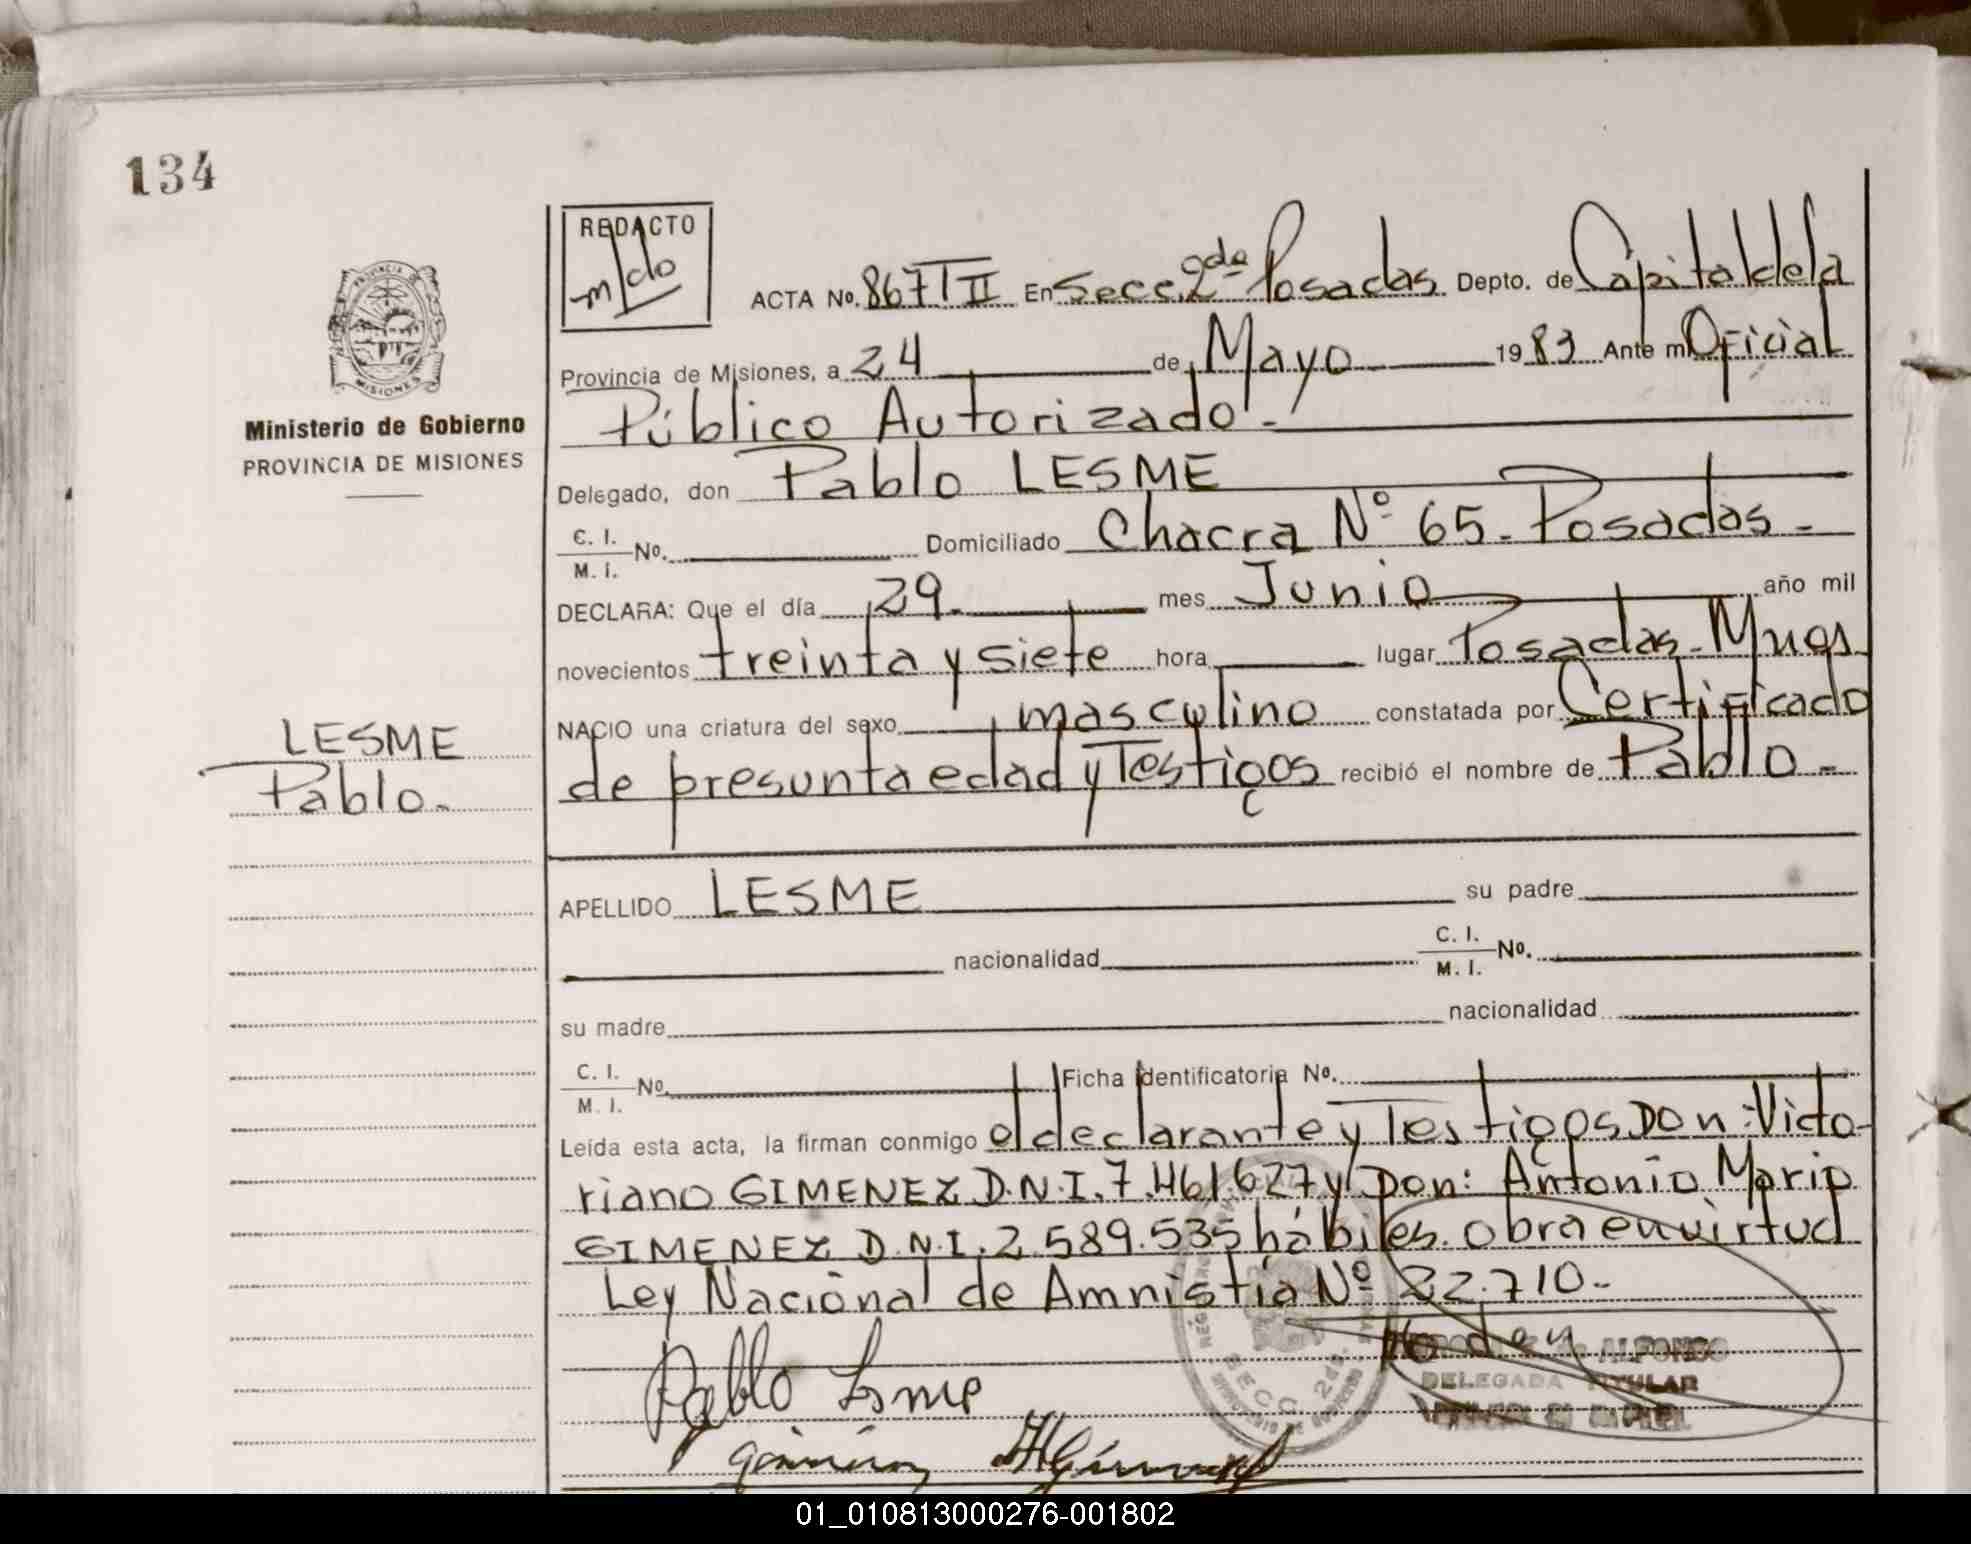 134
REDACTO
ACTA No. 867 T II En Secc. 2da Posadas Depto. de Capital de la
Provincia de Misiones, a 24 de Mayo 1983 Ante mi Oficial
Público Autorizado.-
Ministerio de Gobierno
PROVINCIA DE MISIONES
Delegado, don Pablo LESME
C. I.
M. I. No. Domiciliado Chacra Nº 65.- Posadas.-
DECLARA: Que el día 29. mes Junio año mil
novecientos treinta y siete hora lugar Posadas - Mnes.
NACIO una criatura del sexo masculino constatada por Certificado
de presunta edad y Testigos recibió el nombre de Pablo.-
LESME
Pablo.-
APELLIDO LESME su padre
nacionalidad C. I.
M. I. No.
su madre nacionalidad
C. I.
M. I. No. Ficha Identificatoria No.
Leída esta acta, la firman conmigo el declarante y Testigos Don: Victo-
riano GIMENEZ D.N.I. 7.461.627 y Don: Antonio Mario
GIMENEZ D.N.I. 2.589.535 hábiles. obra en virtud
Ley Nacional de Amnistía Nº 22.710.-
Pablo Lesme
ALFONSO
DELEGADA TITULAR
SECC 2da.
01_010813000276-001802